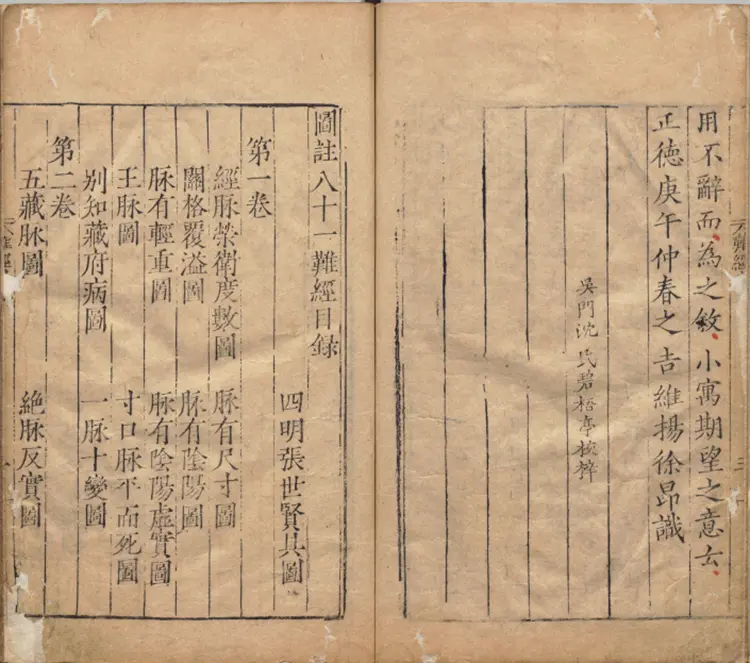 用不辭而為之敘小寓期望之意云
正德庚午仲春之吉維揚徐昂識
吳門沈氏碧梧亭校梓
圖註八十一難經目錄
四明張世賢具圖
第一卷
經脉榮衛度數圖 脉有尺寸圖
關格覆溢圖 脉有陰陽圖
脉有輕重圖 脉有陰陽虛實圖
王脉圖 寸口脉平而死圖
別知藏府病圖 一脉十變圖
第二卷
五藏脉圖 絕脉反實圖